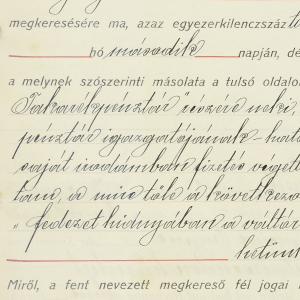 megkeresésére ma, azaz egyezerkilenczszáz
hó második napján, dé
a melynek szószerinti másolata a tulsó oldalo
Takarékpénztár" részére neki,
pénztár igazgatójának – hat
saját irodámban fizetés végett
tam, a mire tőle a következő
„ fedezet hiányában a váltór
hetünk
Miről, a fent nevezett megkereső fél jogai